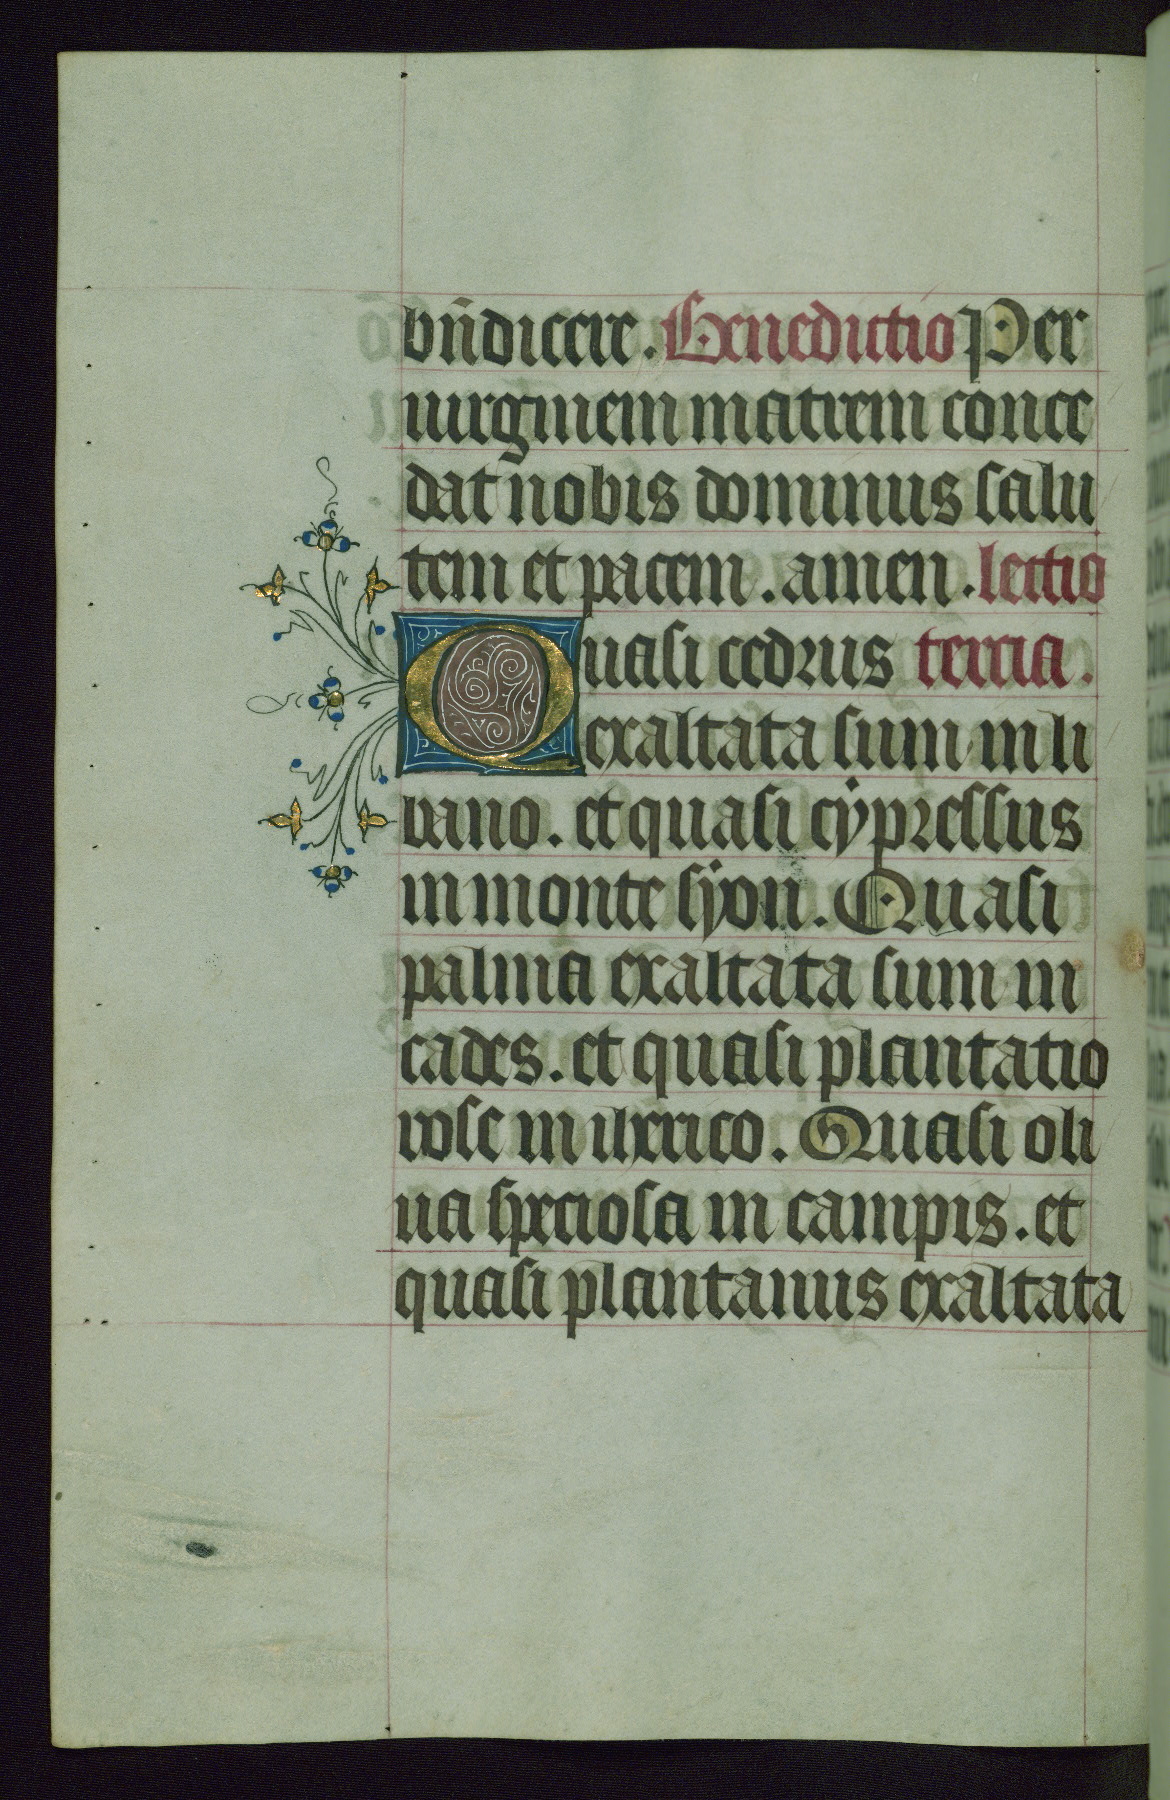 bn̄dicere. Benedictio Per
uirginem matrem conce
dat nobis dominus salu
tem et pacem. amen. lectio
Quasi cedrus tercia.
exaltata sum in li
bano. et quasi cypressus
in monte syon. Quasi
palma exaltata sum in
cades. et quasi plantatio
rose in iherico. Quasi oli
ua speciosa in campis. et
quasi plantanus exaltata